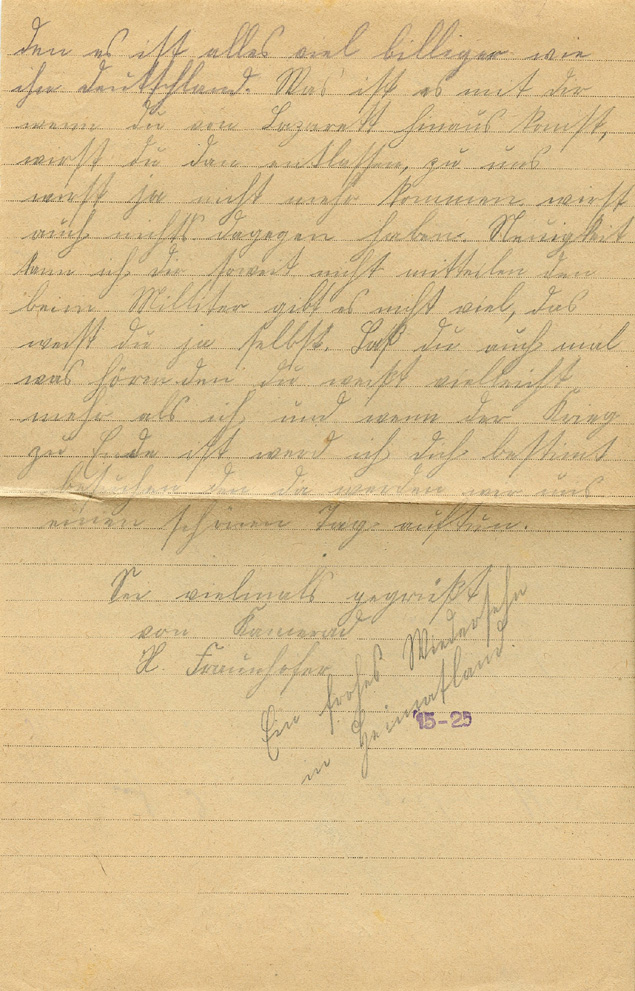 den es ist alles viel billiger wie
ihn Deutschland. Was ist es mit dir
wenn du von Lazarett hinaus kanst,
wirst du dan entlassen, zu uns
wirst ja nicht mehr kommen wirst
auch nichts dagegen haben. Neuigkeit
kann ich dir soweit nicht mitteilen den
beim Militer gibt es nicht viel, das
weist du ja selbst. Laß du auch mal
was hören den du weißt vielleicht
mehr als ich, und wenn der Krieg
zu Ende ist werd ich dich bestimt
besuchen den da werden wir uns
einen schönen Tag auftun.
Sei vielmals gegrüßt
von Kamerad
H. Fraunhofer
Ein frohes Wiedersehn
in Heimatland.
15-25